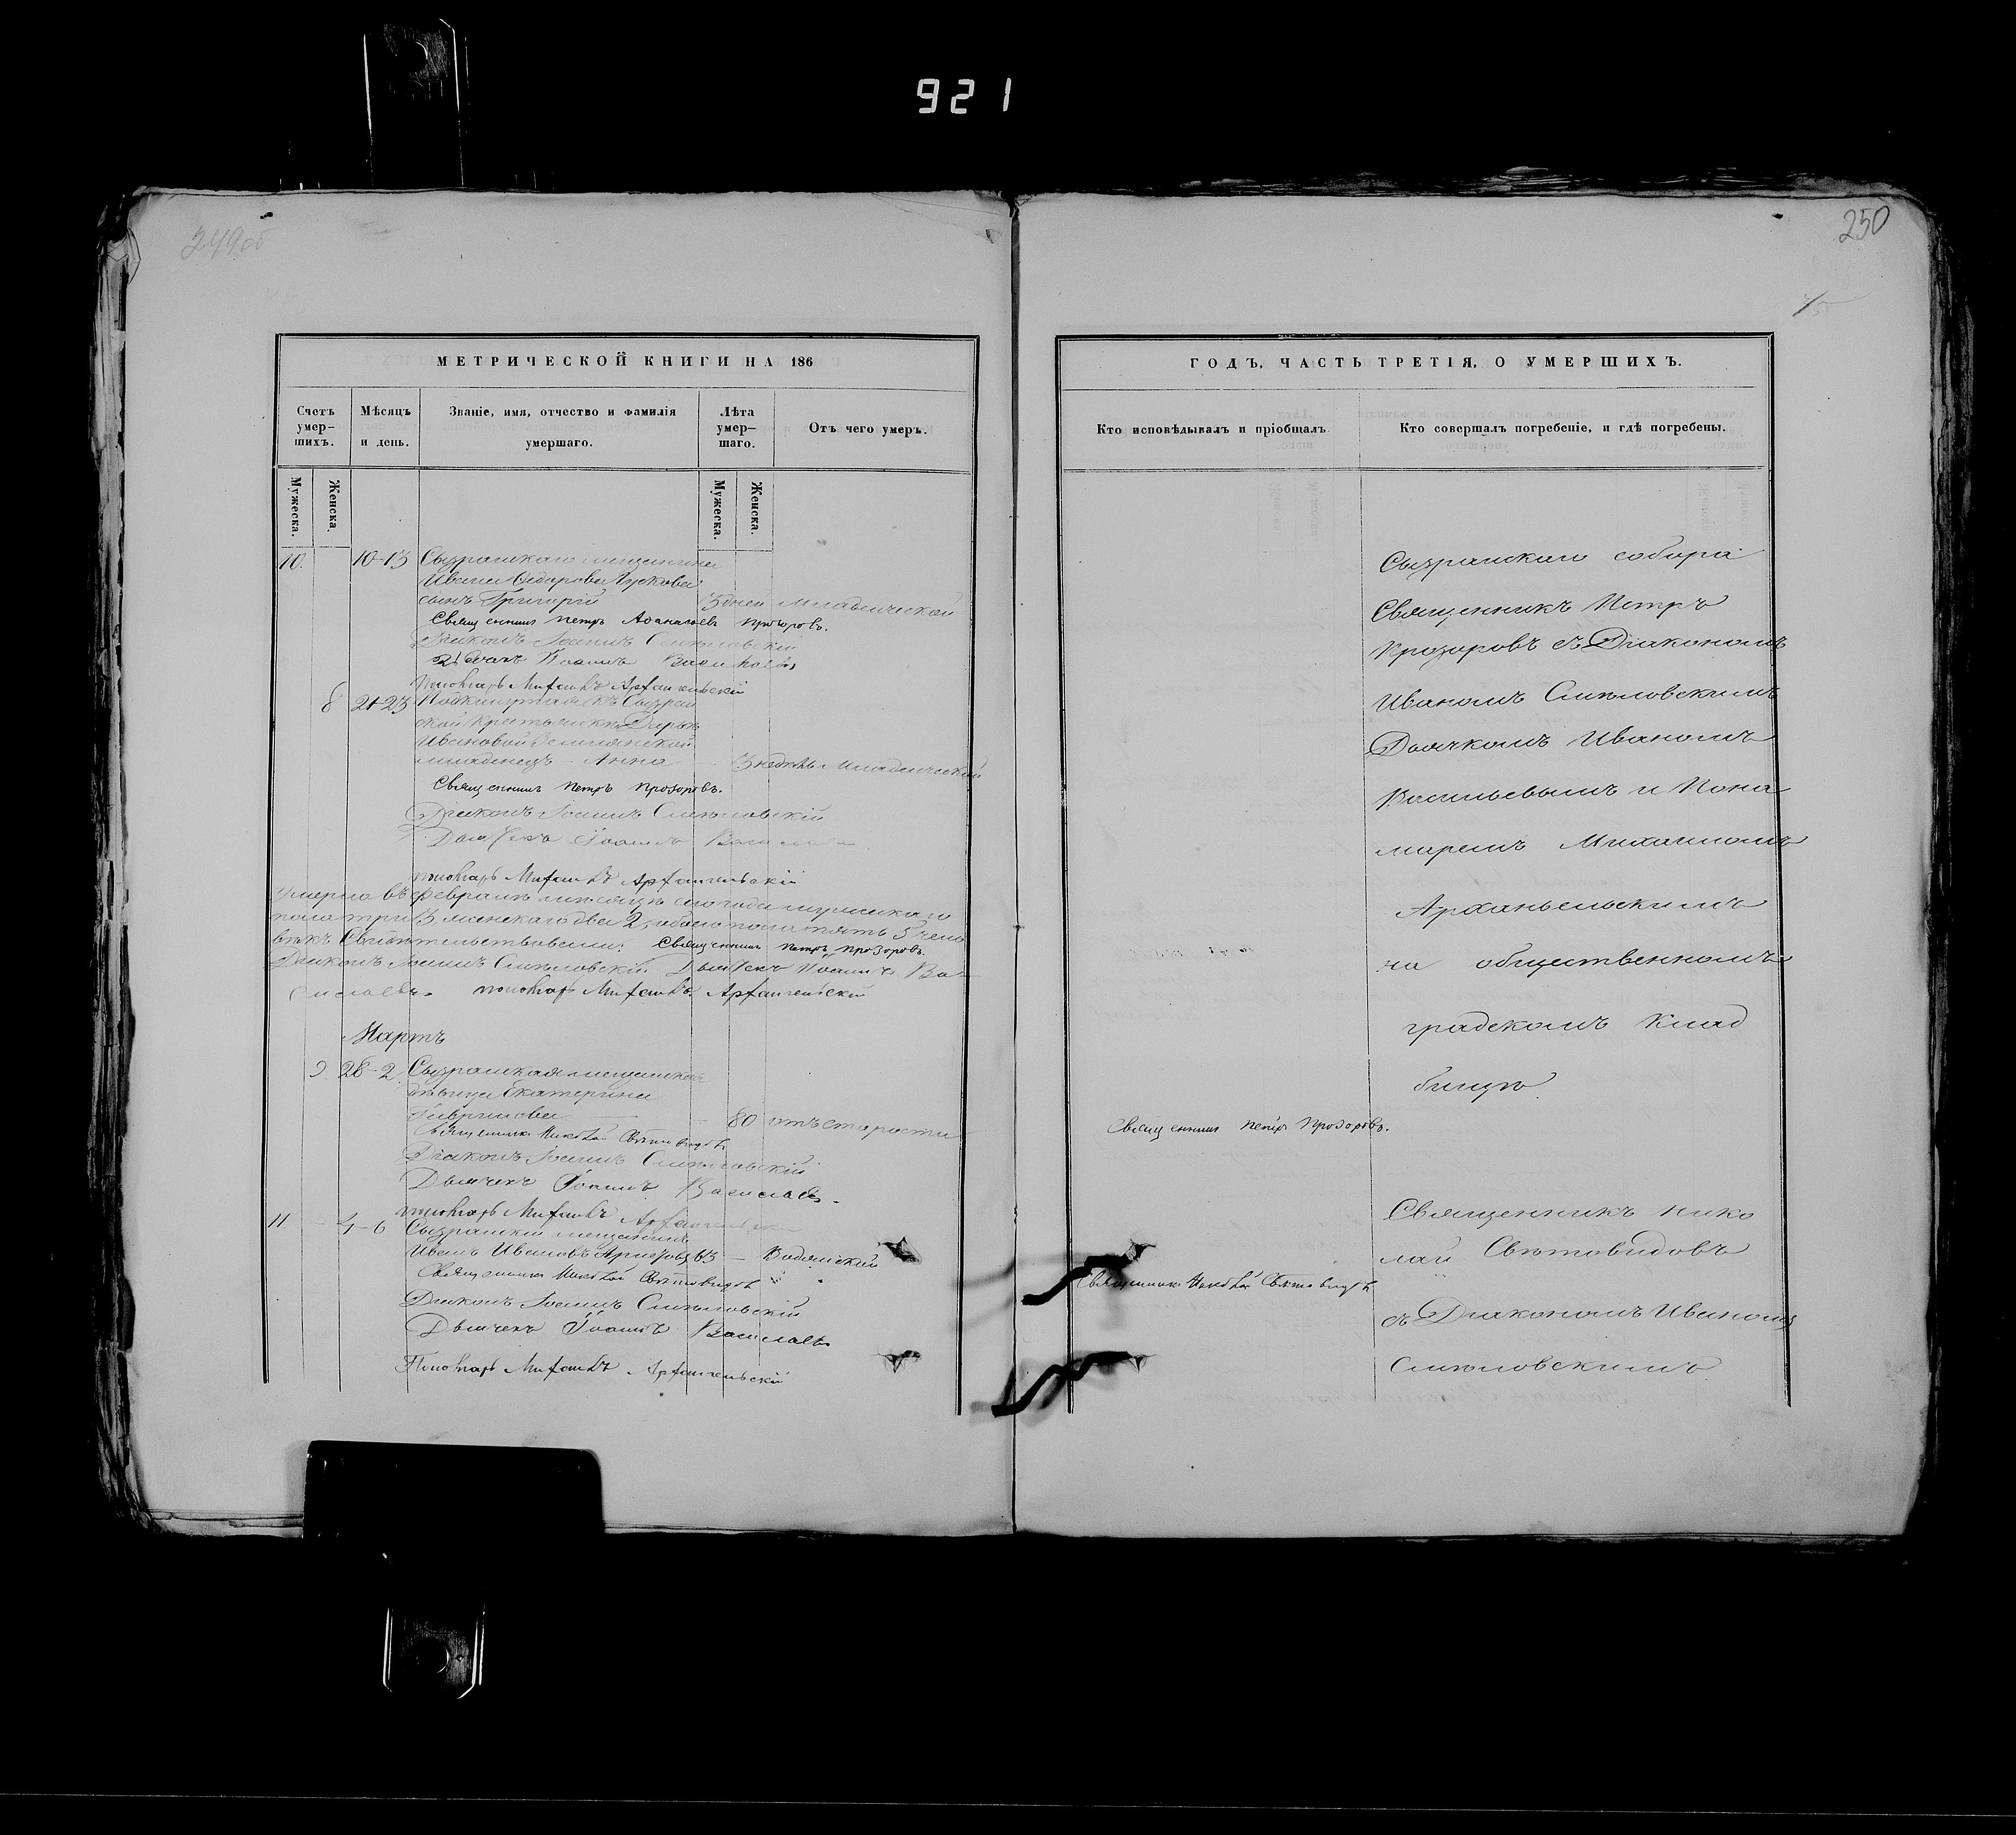 921
249об
250
МЕТРИЧЕСКОЙ КНИГИ НА 186
Счетъ умер-шихъ.
Мѣсяцъ и день.
Званіе, имя, отчество и фамилія умершаго.
Лѣта умер-шаго.
Отъ чего умеръ.
Мужеска.
Женска.
Мужеска.
Женска.
10. 10-13 Сызранскаго мещанина
Ивана Ѳедорова Гускова
сынъ Григорій 3 дней Младенческой
Священникъ Петръ Аѳанасьевъ Прозоровъ.
Діаконъ Іоаннъ Смѣловскій
Дьячекъ Іоаннъ Васильевъ
Пономарь Михаилъ Архангельскій
8 21-23 Подкинутая къ Сызран
ской крестьянкѣ Дарьѣ
Ивановой
младенецъ - Анна - 3 недѣль Младенческой
Священникъ Петръ Прозоровъ.
Діаконъ Іоаннъ Смѣловскій
Дьячекъ Іоаннъ Васильевъ
пономарь Михаилъ Архангельскій
Умерло въ февралѣ мѣсяцѣ сего года мужскаго
пола три 3, женскаго два 2, обоего пола пять 5 чело
вѣкъ Свидѣтельствовали: Священникъ Петръ Прозоровъ.
Діаконъ Іоаннъ Смѣловскій Дьячекъ Іоаннъ Ва-
сильевъ пономарь Михаилъ Архангельскій
Мартъ
9 28-2 Сызранская мещанская
дѣвица Екатерина
Гаврилова - 80 отъ старости
Священникъ Николай Свѣтовидовъ
Діаконъ Іоаннъ Смѣловскій
Дьячекъ Іоаннъ Васильевъ
пономарь Михаилъ Архангельскій
11 - 4-6 Сызранскій мещанинъ
Иванъ Ивановъ 63 - Водянской
Священникъ Николай Свѣтовидовъ
Діаконъ Іоаннъ Смѣловскій
Дьячекъ Іоаннъ Васильевъ
Пономарь Михаилъ Архангельскій
ГОДЪ, ЧАСТЬ ТРЕТІЯ, О УМЕРШИХЪ.
Кто исповѣдывалъ и пріобщалъ.
Кто совершалъ погребеніе, и гдѣ погребены.
Сызранскаго собора
Священникъ Петръ
Прозоровъ съ Діакономъ
Иваномъ Смѣловскимъ
Дьячкомъ Иваномъ
Васильевымъ и Понa
маремъ Михаиломъ
Архангельскимъ
на общественномъ
градскомъ клад
бищѣ.
Священникъ Петръ Прозоровъ.
Священникъ Нико
лай Свѣтовидовъ
Священникъ Николай Свѣтовидовъ
съ Діакономъ Иваномъ
Смѣловскимъ.